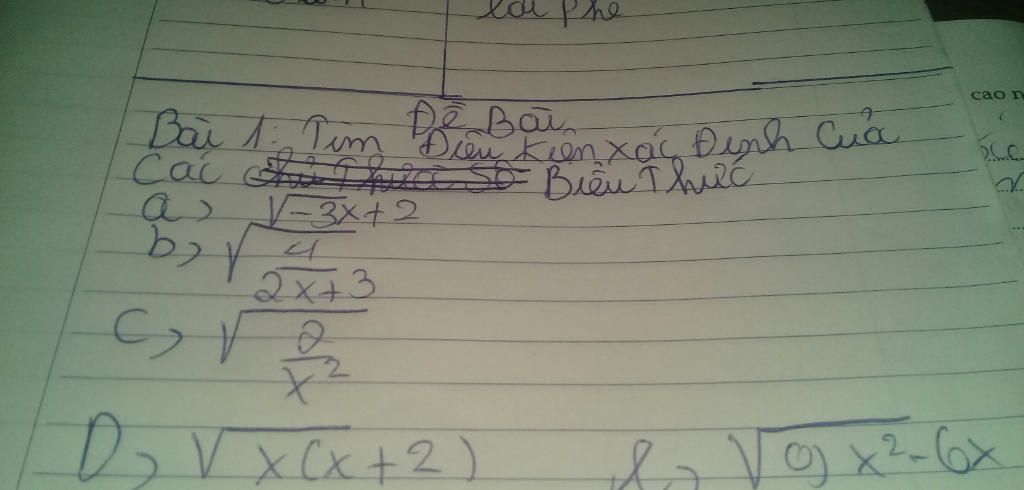 lời phê
cao n
Đề Bài
Bài 1: Tìm Điều Kiện xác Định Của
Các Biểu Thức
a) √-3x+2
b) √4/2x+3
c) √2/x²
D) √x(x+2)
e) √9x²-6x